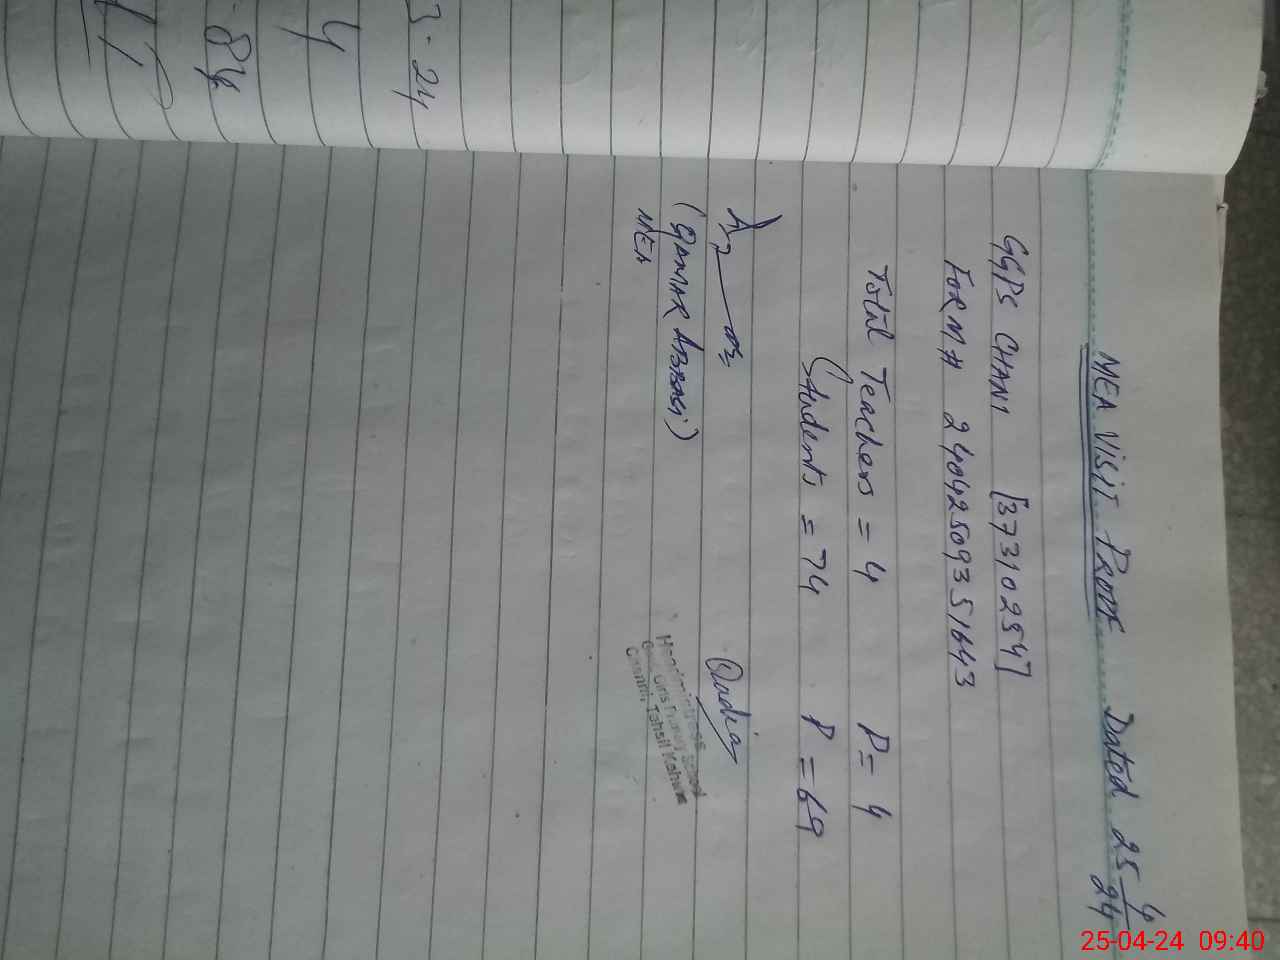 MEA VISIT PROOF Dated 25/4/24
GGPS CHANI [37310254]
FORM # 24042509351643
Total Teachers = 4 P = 4
Students = 74 P = 69
(QAMAR ABBASI)
MEA
Headmistress
Govt. Girls Primary School
Channi, Tahsil Kahuta
3.24
4
84
25-04-24 09:40